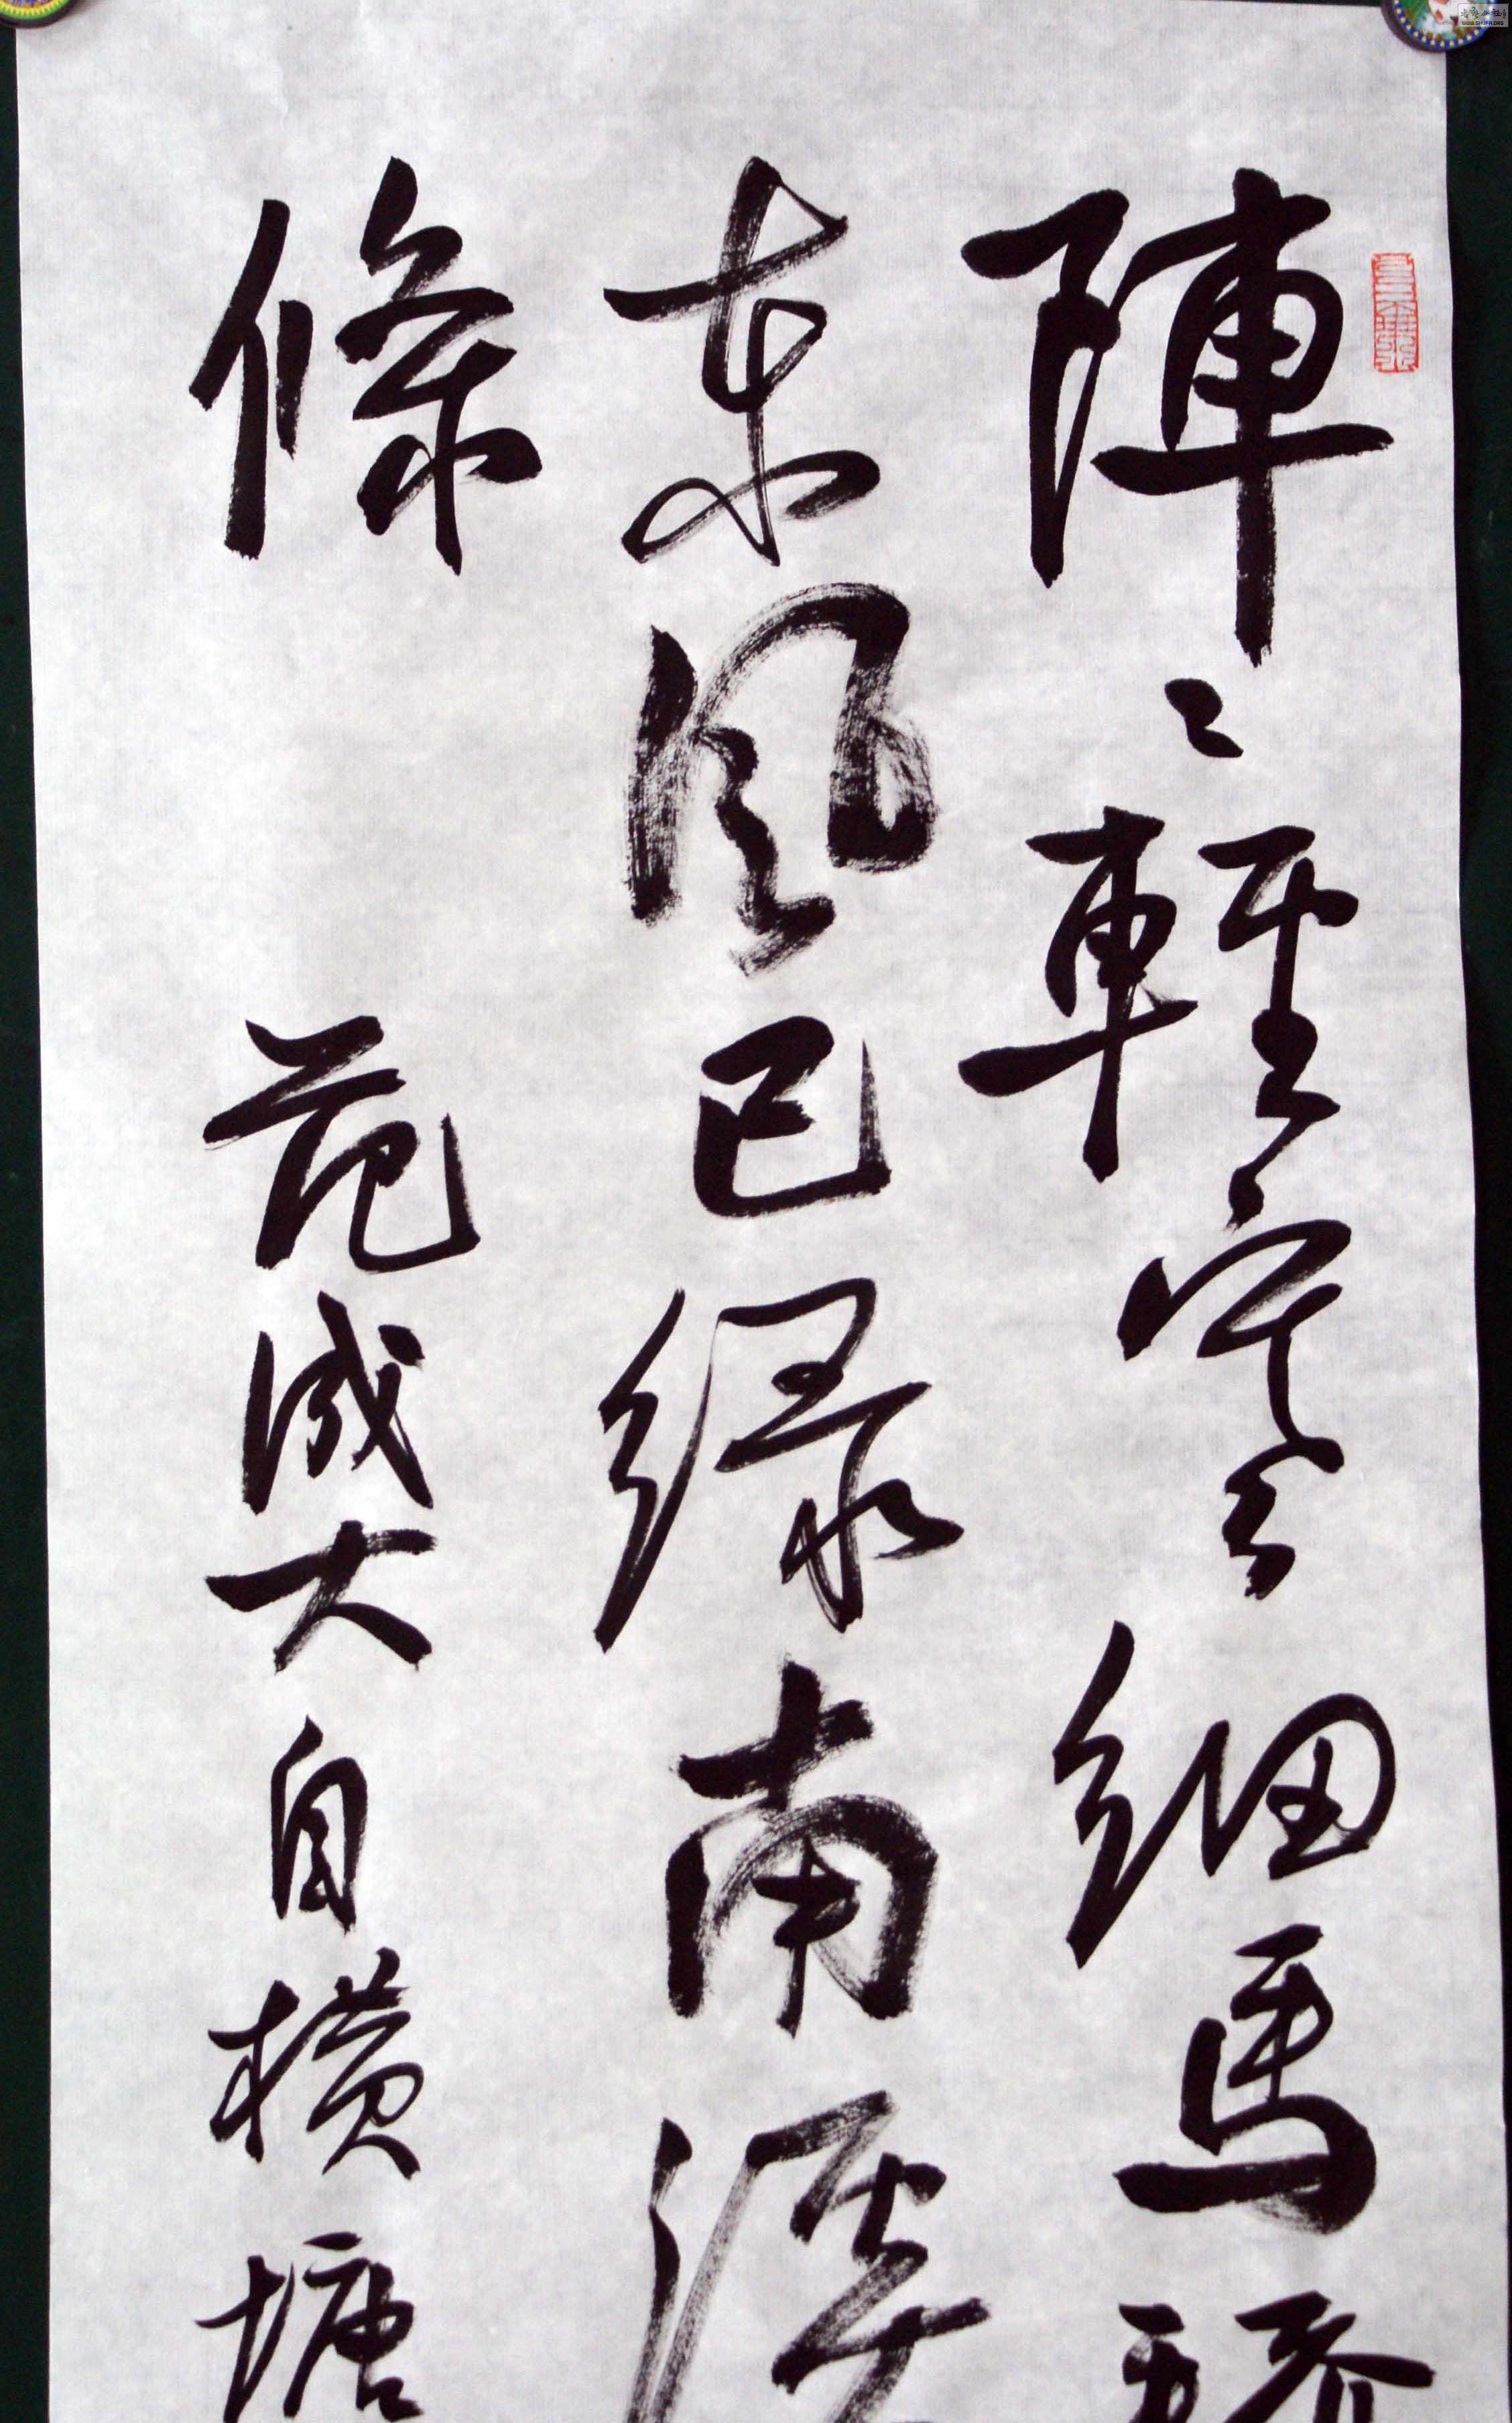 陣〻輕寒細馬驕
東風已綠南溪
條 范成大自橫塘